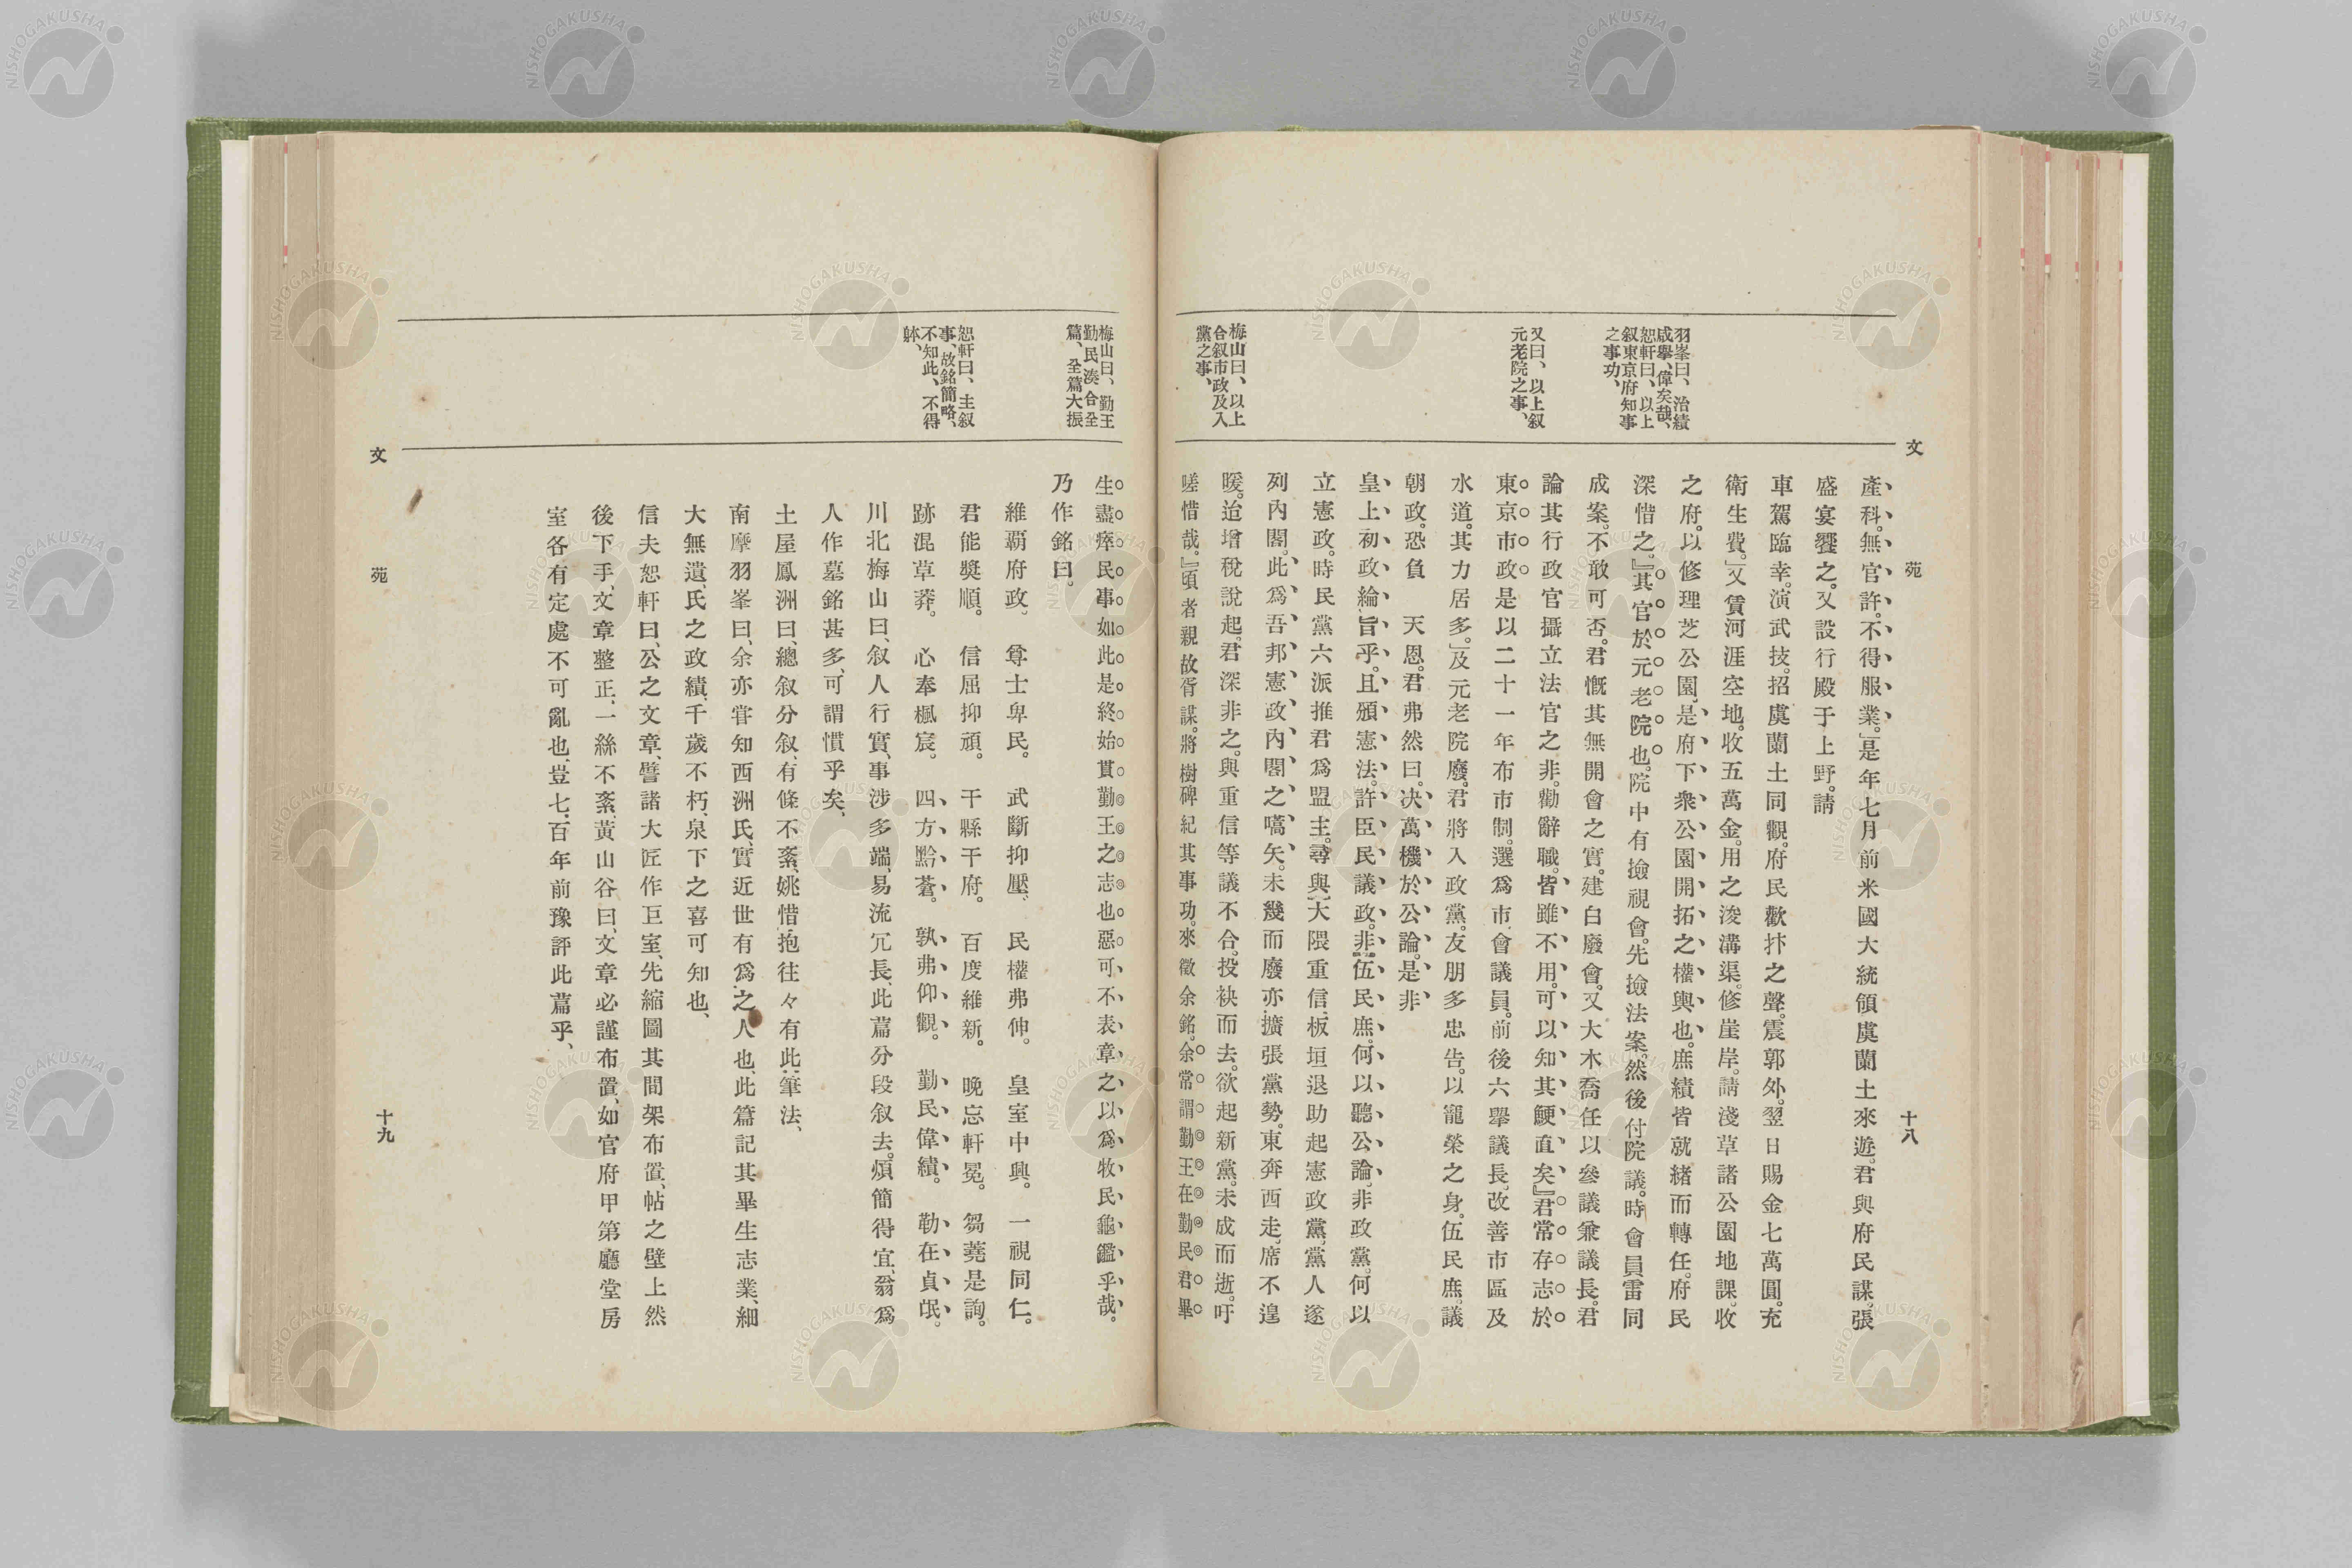 文苑
十八
羽峯曰、治績
咸擧、偉矣哉、
恕軒曰、以上
叙東京府知事
之事功、
又曰、以上叙
元老院之事、
梅山曰、以上
合叙市政及入
黨之事、
產科。無官許。不得服業。」是年七月前米國大統領虞蘭土來遊。君與府民謀。張
盛宴饗之。又設行殿于上野。請
車駕臨幸。演武技。招虞蘭土同觀。府民歡抃之聲。震郭外。翌日賜金七萬圓。充
衛生費。」又賃河涯空地。收五萬金。用之浚溝渠。修崖岸。請淺草諸公園地課。收
之府。以修理芝公園。是府下衆公園開拓之權輿也。庶績皆就緒而轉任。府民
深惜之。』其官於元老院也。院中有撿視會。先撿法案。然後付院議。時會員雷同
成案。不敢可否。君慨其無開會之實。建白廢會。又大木喬任以參議兼議長。君
論其行政官攝立法官之非。勸辭職。皆雖不用。可以知其鯁直矣。』君常存志於
東京市政。是以二十一年布市制。選爲市會議員。前後六擧議長。改善市區及
水道。其力居多。」及元老院廢。君將入政黨。友朋多忠告。以寵榮之身。伍民庶。議
朝政。恐負　天恩。君弗然曰。決萬機於公論。是非
皇上初政綸旨乎。且頒憲法。許臣民議政。非伍民庶。何以聽公論。非政黨。何以
立憲政。時民黨六派推君爲盟主。尋與大隈重信。板垣退助起憲政黨。黨人遂
列內閣。此爲吾邦憲政內閣之嚆矢。未幾而廢。亦擴張黨勢。東奔西走。席不遑
暖。迨增稅說起。君深非之。與重信等議不合。投袂而去。欲起新黨。未成而逝。吁
嗟惜哉。』頃者親故胥謀。將樹碑紀其事功。來徵余銘。余常謂勤王在勤民。君畢
梅山曰、勤王
勤民湊合全
篇、全篇大振
恕軒曰、主叙
事、故銘簡略、
不知此、不得
躰、
生盡瘁民事如此。是終始貫勤王之志也。惡可不表章之以爲牧民龜鑑乎哉。
乃作銘曰。
維覇府政。　尊士卑民。　武斷抑壓。　民權弗伸。　皇室中興。　一視同仁。
君能奬順。　信屈抑頑。　干縣干府。　百度維新。　晩忘軒冕。　芻蕘是詢。
跡混草莽。　心奉楓宸。　四方黔蒼。　孰弗仰觀。　勤民偉績。　勒在貞珉。
川北梅山曰、叙人行實、事涉多端、易流冗長、此篇分段叙去、煩簡得宜、翁爲
人作墓銘甚多、可謂慣乎矣、
土屋鳳洲曰、總叙分叙、有條不紊、姚惜抱往々有此筆法、
南摩羽峯曰、余亦甞知西洲氏、實近世有爲之人也、此篇記其畢生志業、細
大無遺、氏之政績、千歲不朽、泉下之喜可知也、
信夫恕軒曰、公之文章、譬諸大匠作巨室、先縮圖其間架布置、帖之壁上然
後下手、文章整正、一絲不紊、黃山谷曰、文章必謹布置、如官府甲第廳堂房
室各有定處不可亂也、豈七百年前豫評此篇乎、
文苑
十九